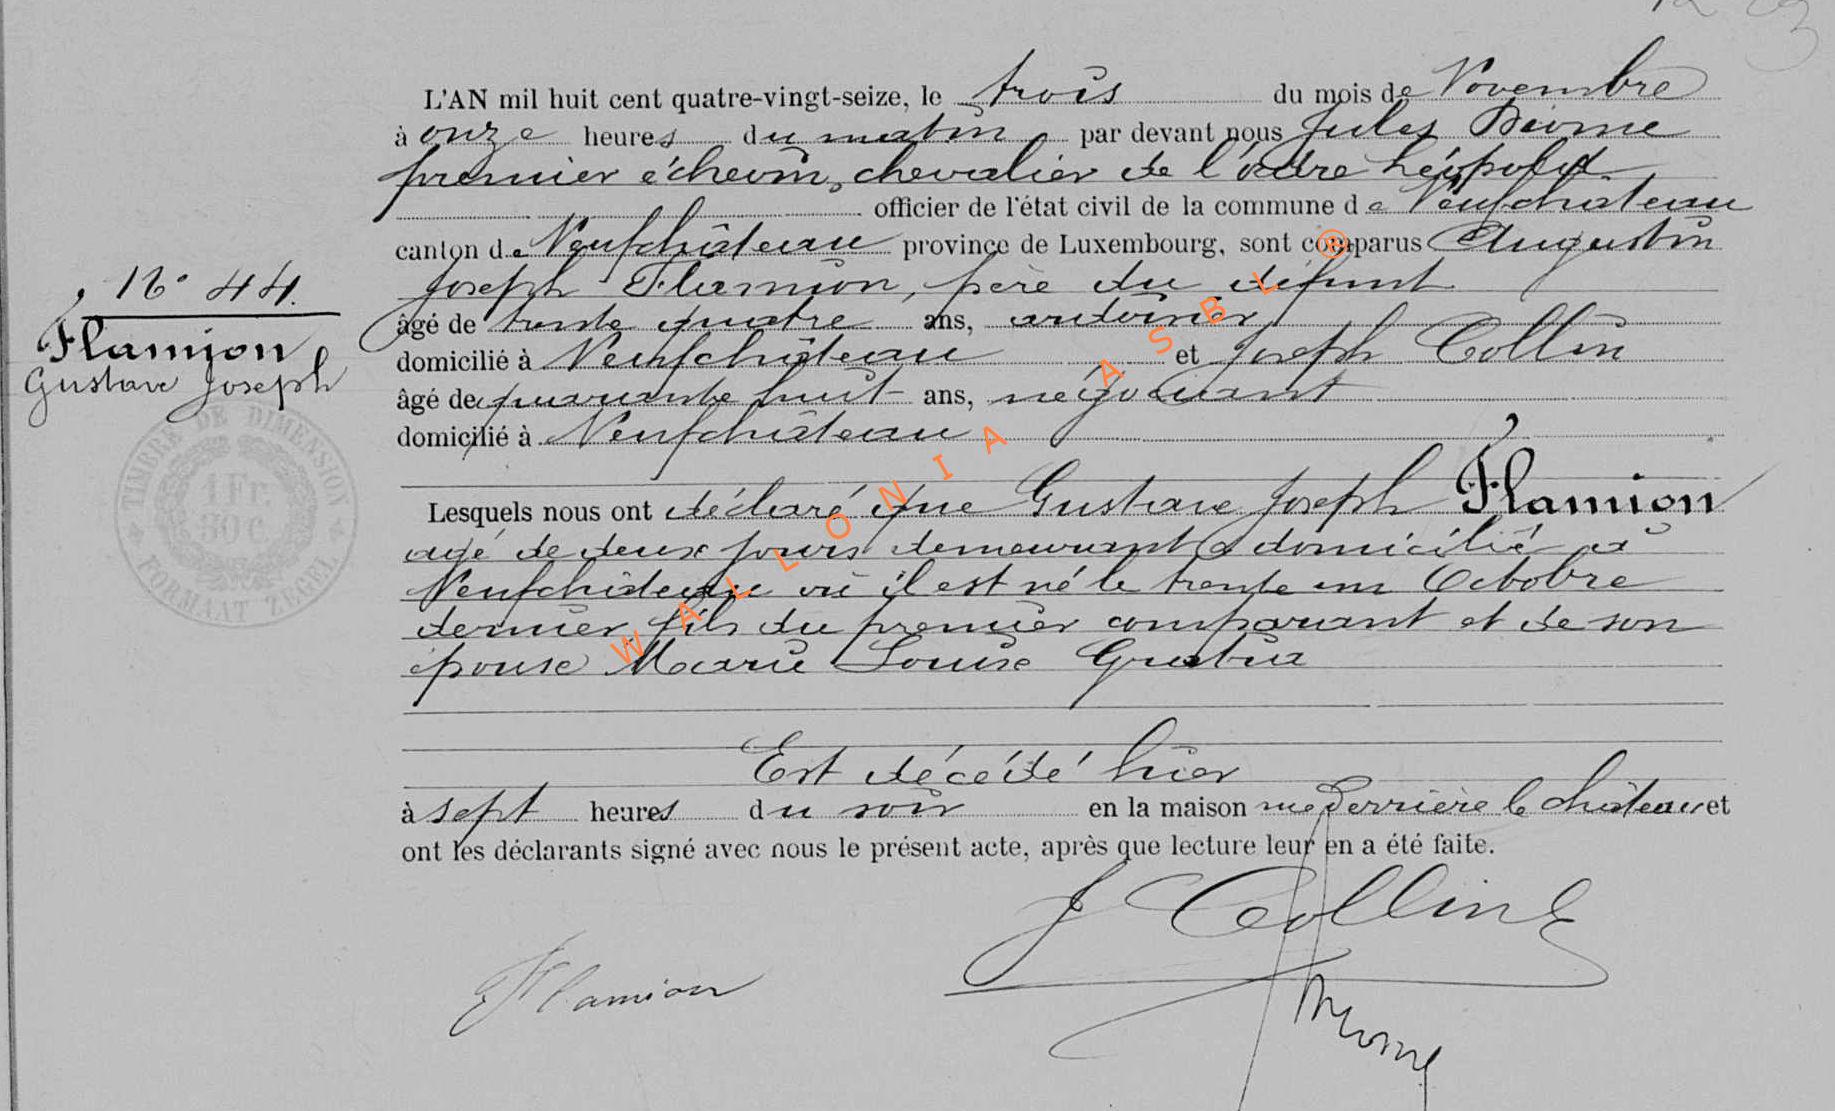 L'AN mil huit cent quatre-vingt-seize, le trois du mois de Novembre
à onze heures du matin par devant nous Jules
premier échevin, chevalier de l'ordre Léopold
officier de l'état civil de la commune de Neufchâteau
canton de Neufchâteau province de Luxembourg, sont comparus Augustin
Joseph Flamion, père du défunt
âgé de trente quatre ans,
domicilié à Neufchâteau et Joseph Collin
âgé de quarante huit ans, négociant
domicilié à Neufchâteau
N° 44.
Flamion
Gustave Joseph
TIMBRE DE DIMENSION
1 Fr.
30 C.
FORMAAT ZEGEL
Lesquels nous ont déclaré que Gustave Joseph Flamion
agé de deux jours demeurant & domicilié à
Neufchâteau où il est né le trente un Octobre
dernier, fils du premier comparant et de son
épouse Marie Louise
Est décédé hier
à sept heures du soir en la maison rue Derrière le château et
ont les déclarants signé avec nous le présent acte, après que lecture leur en a été faite.
J Collin
Flamion
WALLONIA ASBL ®